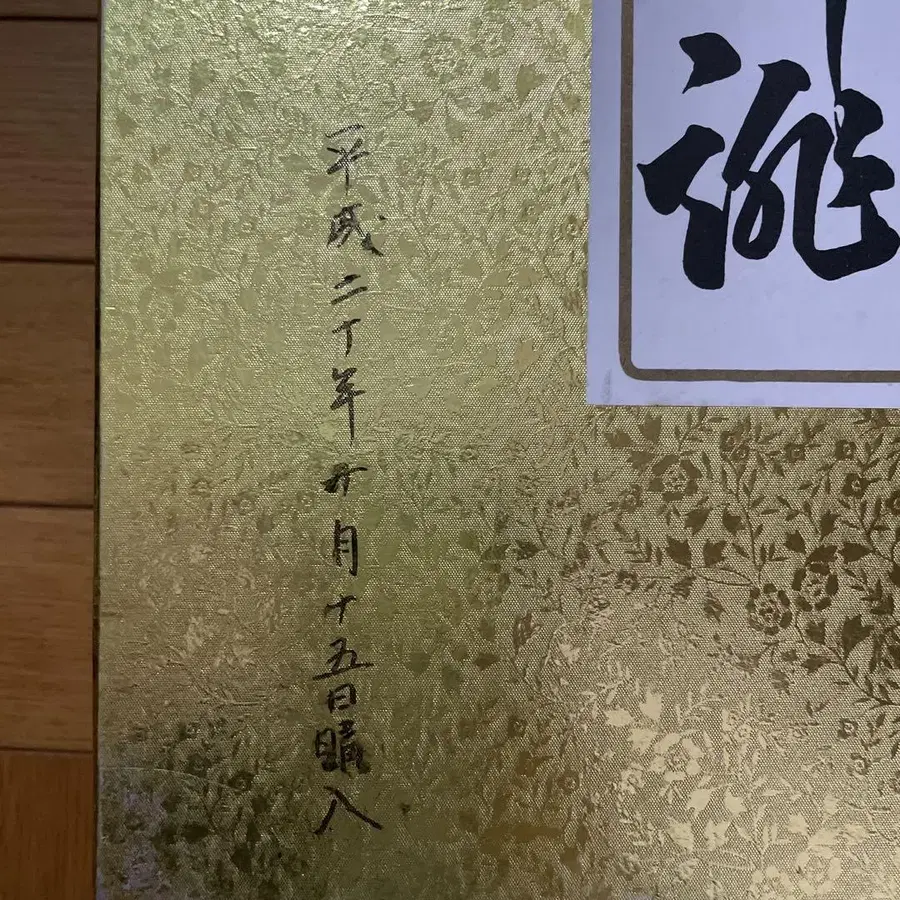 誂
平成二十年 月十五日購入